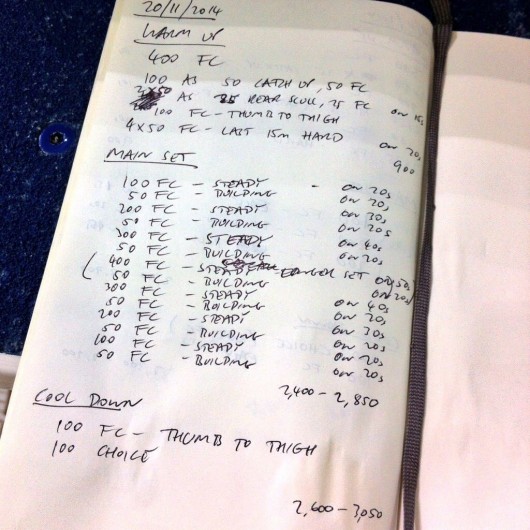 20/11/2014
WARM UP
400 FC
100 AS 50 CATCH UP, 50 FC
2x50 AS REAR SCULL, 25 FC on 15s
100 FC - THUMB TO THIGH
4x50 FC - LAST 15m HARD on 20s
900
MAIN SET
100 FC - STEADY - on 20s
50 FC - BUILDING on 20s
200 FC - STEADY on 20s
50 FC - BUILDING on 20s
300 FC - STEADY on 40s
50 FC - BUILDING on 20s
( 400 FC - STEADY LONGER SET on 50s
50 FC - BUILDING on 20s
300 FC - STEADY on 40s
50 FC - BUILDING on 20s
200 FC - STEADY on 30s
50 FC - BUILDING on 20s
100 FC - STEADY on 20s
50 FC - BUILDING on 20s
2,400 - 2,850
COOL DOWN
100 FC - THUMB TO THIGH
100 CHOICE
2,600 - 3,050